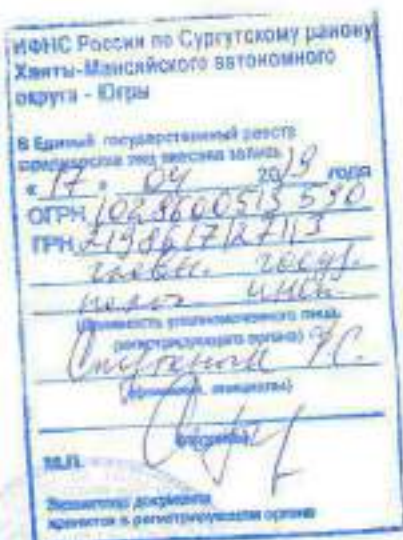 ИФНС России по Сургутскому району
Ханты-Мансийского автономного
округа - Югры
В Единый государственный реестр
юридических лиц внесена запись
« 17 » 04 2019 года
ОГРН 1028600513590
ГРН 2198617127113
главн. госуд.
налог. инсп.
(должность уполномоченного лица
регистрирующего органа)
С.
(фамилия, инициалы)
(подпись)
М.П.
Экземпляр документа
хранится в регистрирующем органе